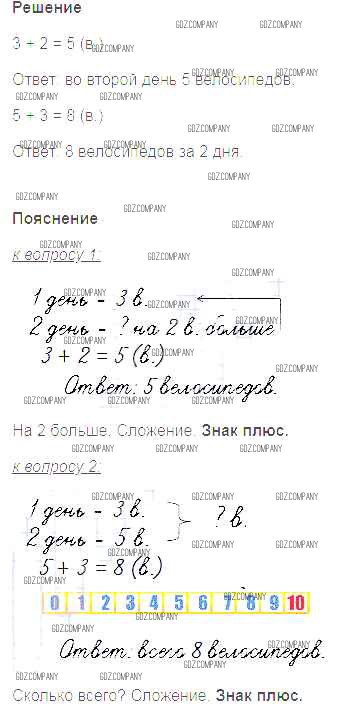 Решение
3 + 2 = 5 (в.)
Ответ: во второй день 5 велосипедов.
5 + 3 = 8 (в.)
Ответ: 8 велосипедов за 2 дня.
Пояснение
к вопросу 1:
1 день - 3 в.
2 день - ? на 2 в. больше
3 + 2 = 5 (в.)
Ответ: 5 велосипедов.
На 2 больше. Сложение. Знак плюс.
к вопросу 2:
1 день - 3 в.
2 день - 5 в.
? в.
5 + 3 = 8 (в.)
0 1 2 3 4 5 6 7 8 9 10
Ответ: всего 8 велосипедов.
Сколько всего? Сложение. Знак плюс.
GDZCOMPANY